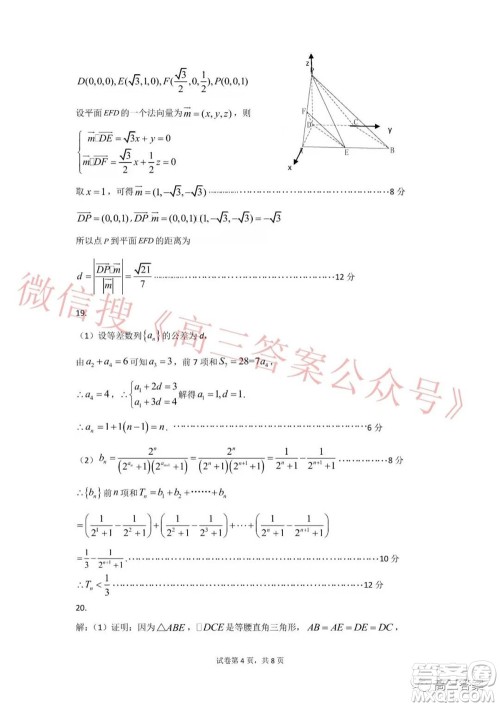 D(0,0,0),E(√3,1,0),F(√3/2,0,1/2),P(0,0,1)
设平面 EFD 的一个法向量为 m=(x,y,z)，则
{ m□DE=√3x+y=0
m□DF=√3/2 x+1/2 z=0
取 x=1，可得 m=(1,-√3,-√3) ……………………………………8 分
DP=(0,0,1).DP m=(0,0,1) (1,-√3,-√3)=-√3
所以点 P 到平面 EFD 的距离为
d=|DP□m/|m||=√21/7 ……………………………………12 分
z
P
F
D
C
y
E
B
x
19.
（1）设等差数列{aₙ}的公差为 d，
由 a₂+a₄=6 可知 a₃=3，前 7 项和 S₇=28=7a₄，
∴a₄=4，∴{ a₁+2d=3
a₁+3d=4 解得 a₁=1,d=1.
∴aₙ=1+1(n-1)=n. ……………………………………6 分
（2）bₙ=2ⁿ/((2^{aₙ}+1)(2^{aₙ₊₁}+1))=2ⁿ/((2ⁿ+1)(2ⁿ⁺¹+1))=1/(2ⁿ+1)-1/(2ⁿ⁺¹+1) ……………8 分
∴{bₙ}前 n 项和 Tₙ=b₁+b₂+……+bₙ
=(1/(2¹+1)-1/(2²+1))+(1/(2²+1)-1/(2³+1))+⋯+(1/(2ⁿ+1)-1/(2ⁿ⁺¹+1))
=1/3-1/(2ⁿ⁺¹+1). ……………………………………10 分
∴Tₙ<1/3 ……………………………………12 分
20.
解：（1）证明：因为△ABE，□DCE是等腰直角三角形， AB=AE=DE=DC，
试卷第 4 页，共 8 页
微信搜《高三答案公众号》
高三答案